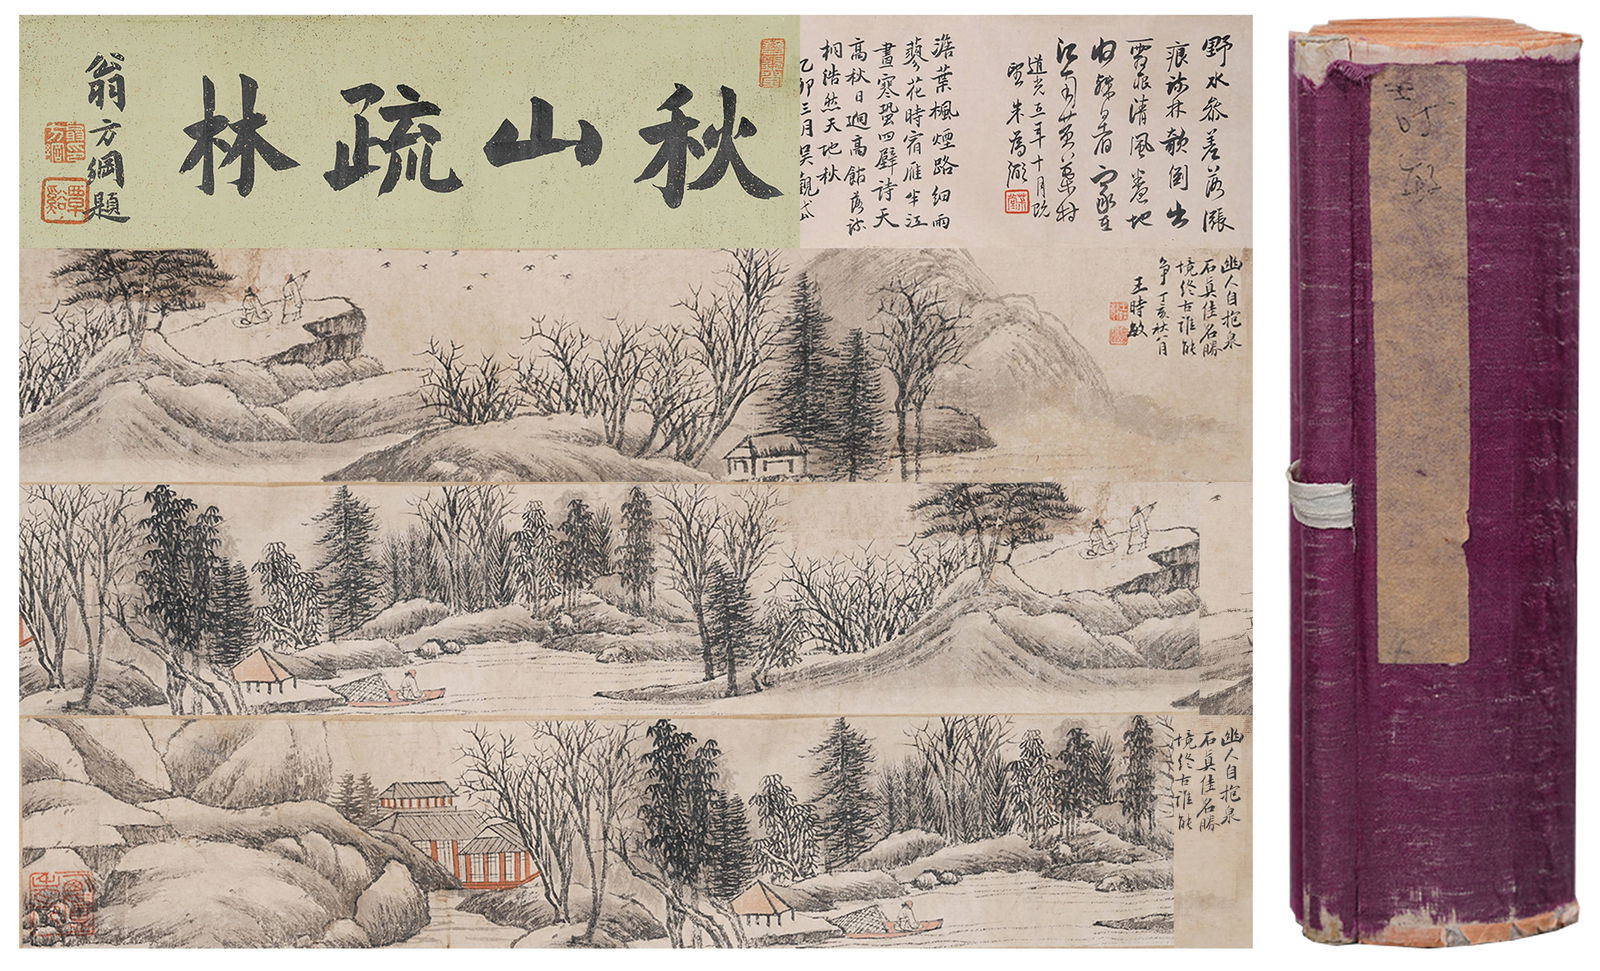 秋山疏林
翁方綱題
野水參差落漲
痕疏林欹倒出
霜根清風卷地
收殘暑
江南黃葉村
道光五年十月既
望朱為弼
澹葉楓煙路細雨
蓼花時宿雁半江
畫寒蛩四壁詩天
高秋日迥高館落疏
桐浩然天地秋
乙卯三月吳觀岱
幽人自抱泉
石真佳名勝
境終古誰能
爭丁亥秋八月
王時敏
幽人自抱泉
石真佳名勝
境終古誰能